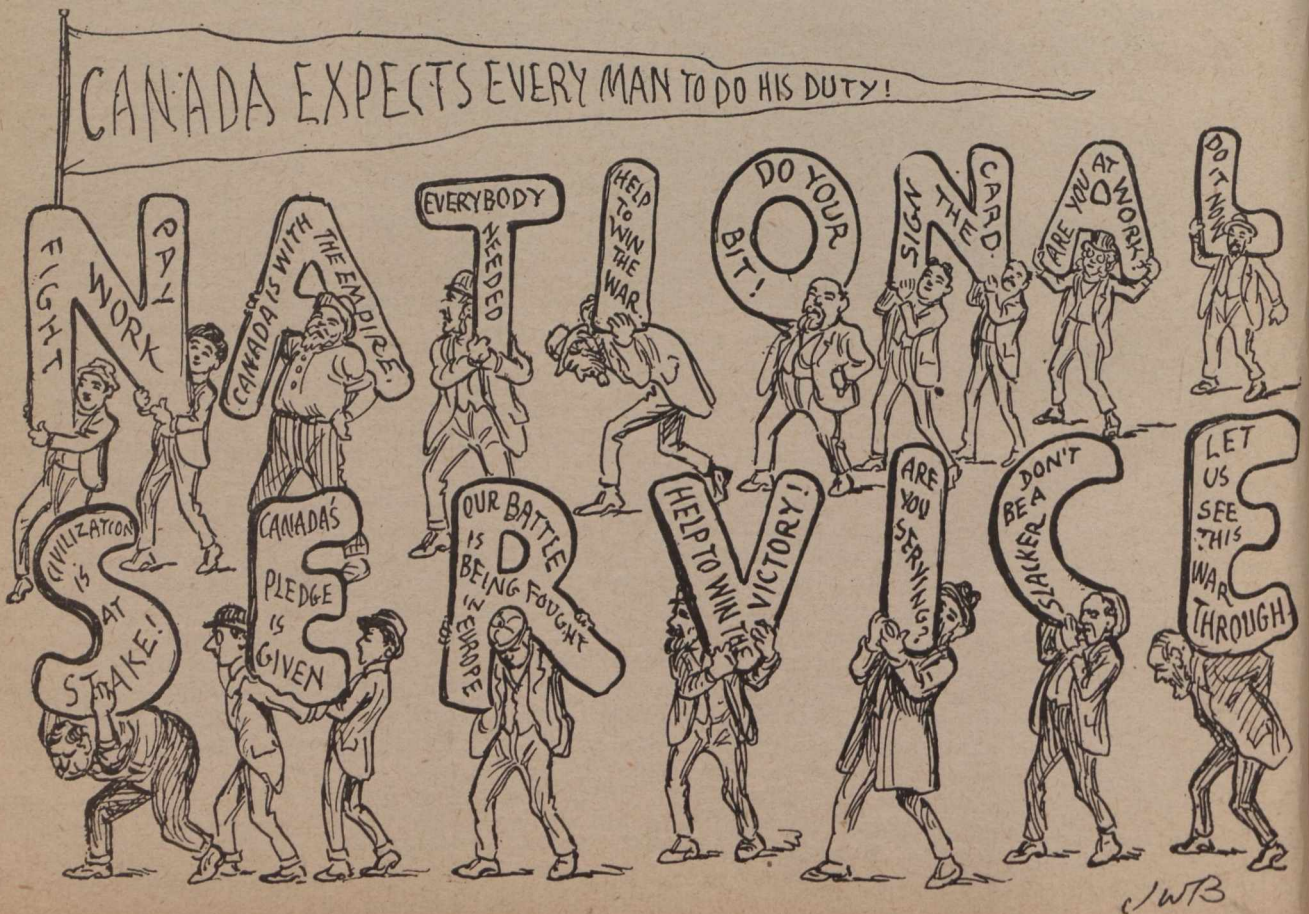 CANADA EXPECTS EVERY MAN TO DO HIS DUTY!
FIGHT
WORK
PAY
CANADA IS WITH
THE EMPIRE
EVERYBODY
NEEDED
HELP
TO WIN
THE
WAR
DO YOUR
BIT!
SIGN
THE
CARD.
ARE YOU AT
WORK?
DO IT NOW
CIVILIZATION
IS
AT
STAKE!
CANADA'S
PLEDGE
IS
GIVEN
OUR BATTLE
IS
BEING FOUGHT
IN
EUROPE
HELP TO WIN THE
VICTORY!
ARE
YOU
SERVING?
DON'T
BE A
SLACKER
LET
US
SEE
THIS
WAR
THROUGH
JWB